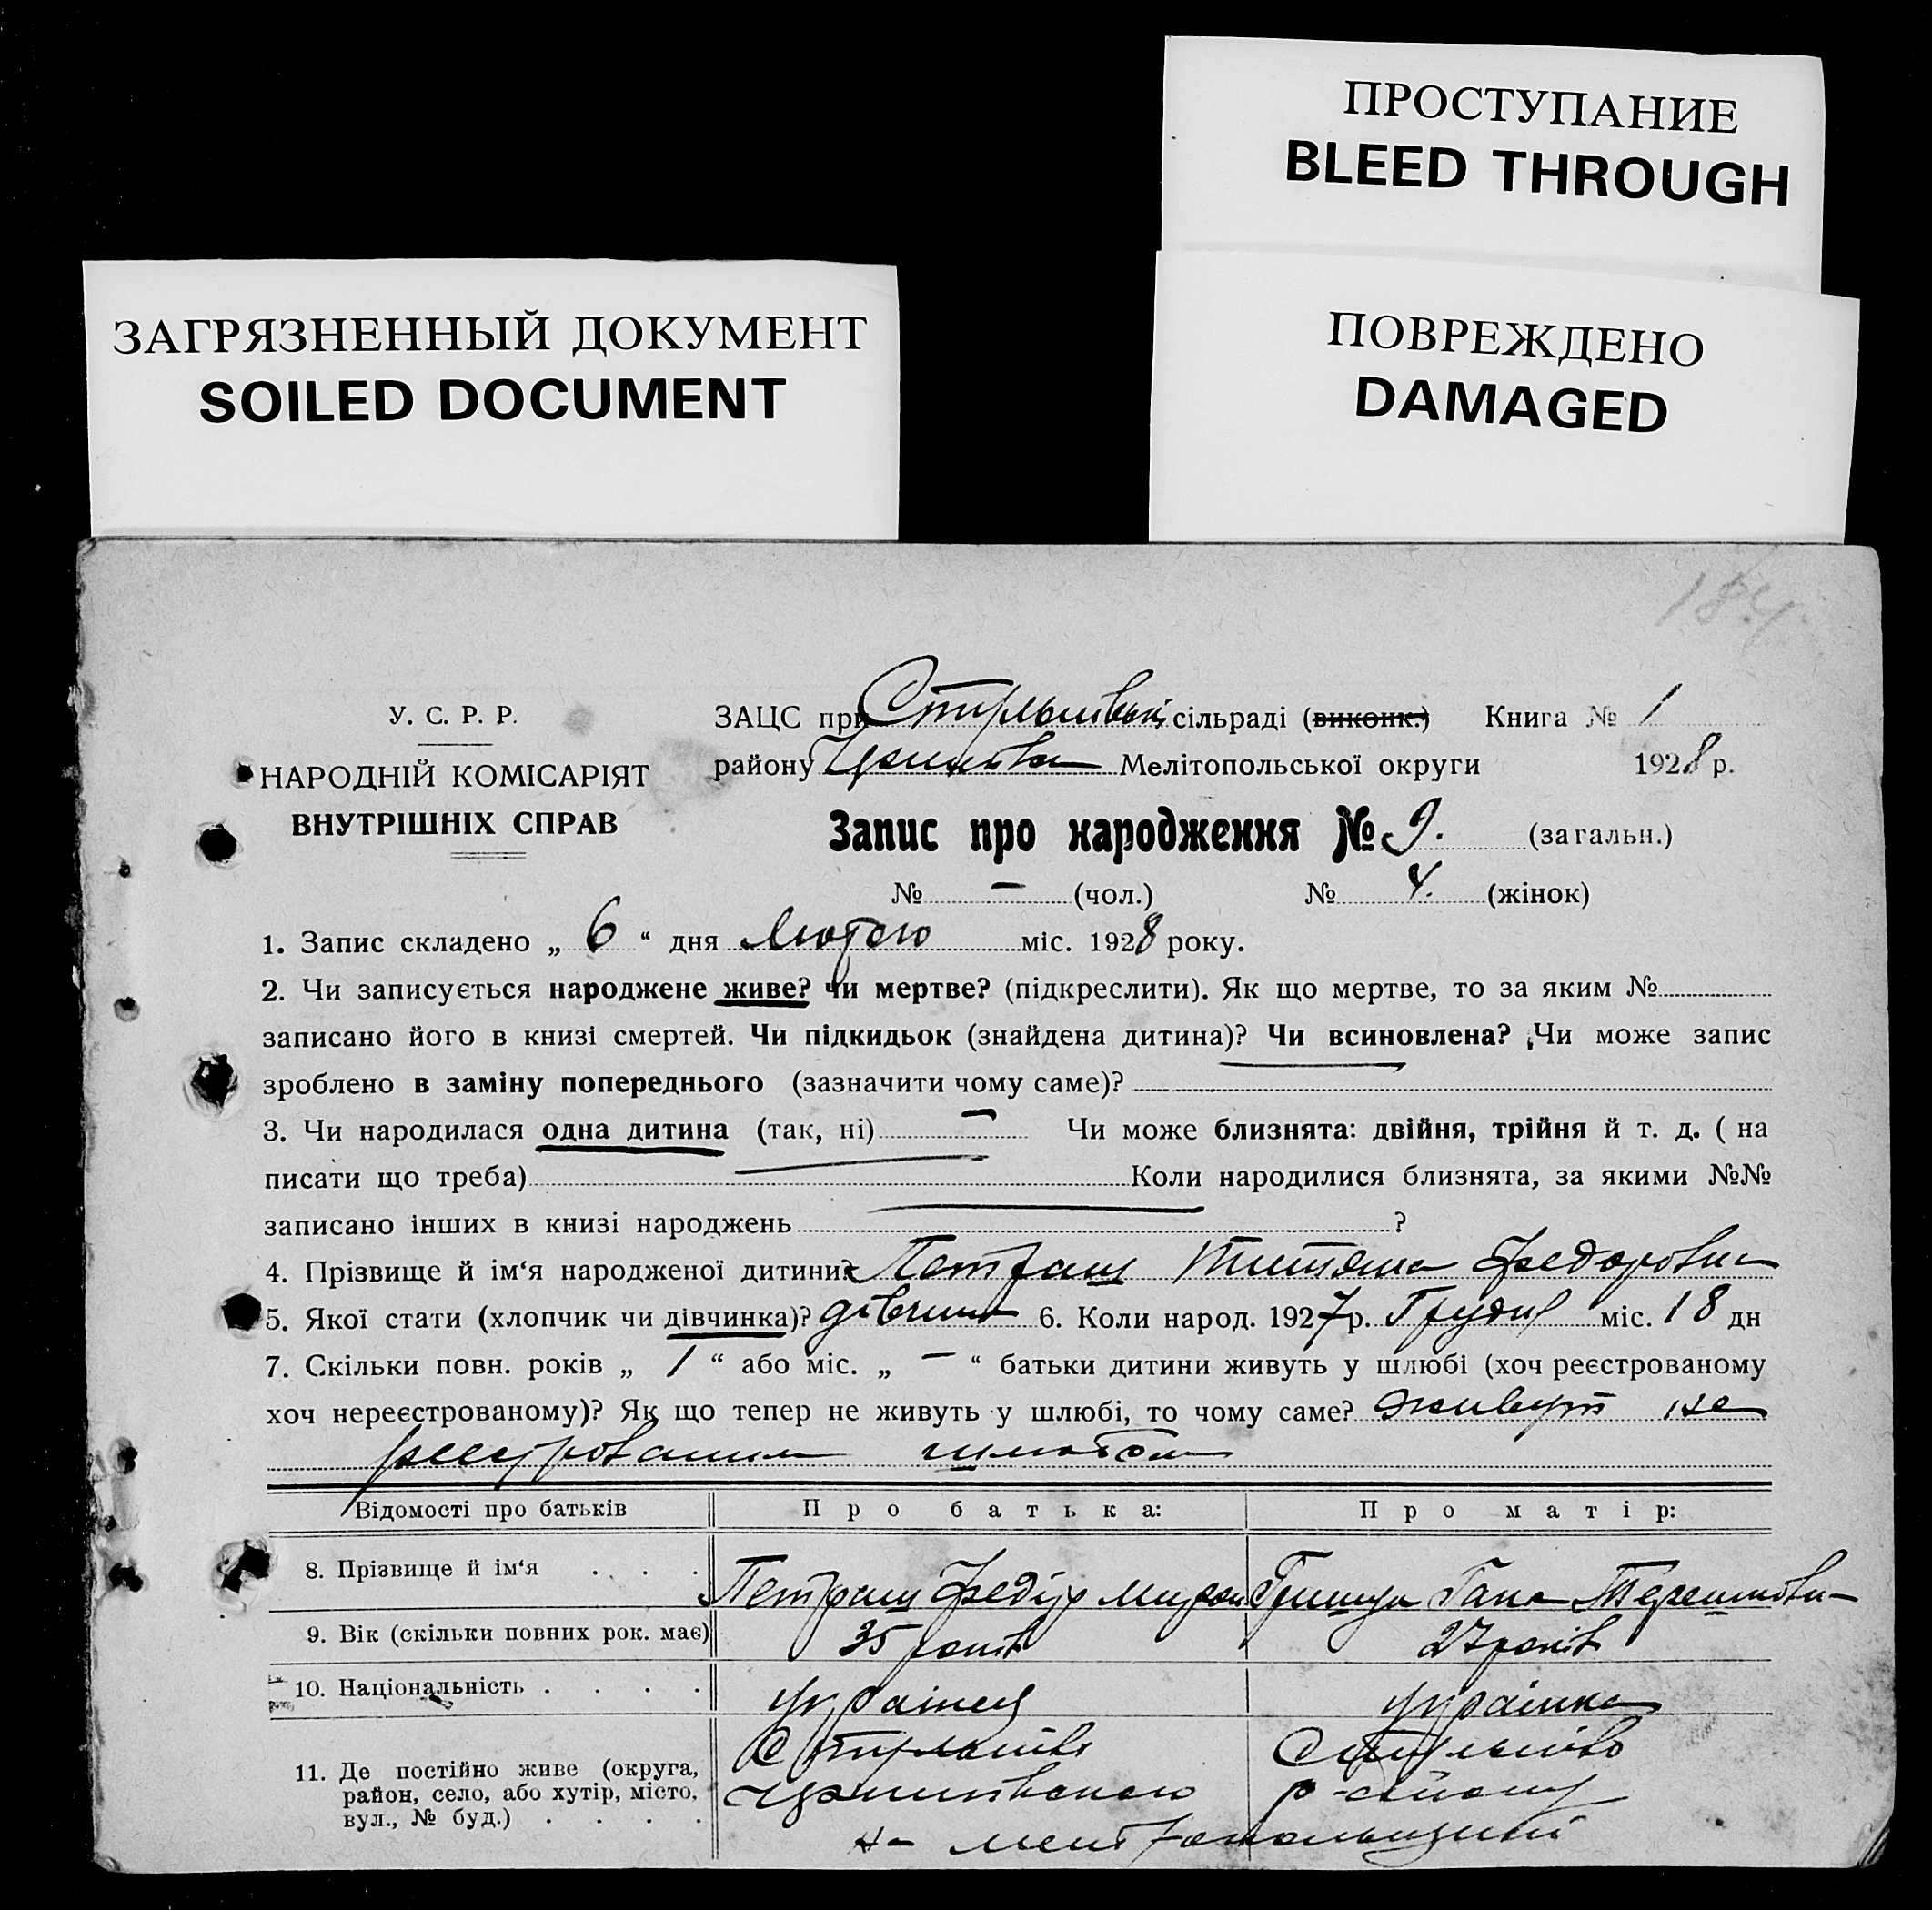 ПРОСТУПАНИЕ
BLEED THROUGH
ЗАГРЯЗНЕННЫЙ ДОКУМЕНТ
SOILED DOCUMENT
ПОВРЕЖДЕНО
DAMAGED
184
У. С. Р. Р.
НАРОДНІЙ КОМІСАРІЯТ
ВНУТРІШНІХ СПРАВ
ЗАЦС при сільраді (виконк.) Книга № 1
району Мелітопольської округи 1928 р.
Запис про народження № 9. (загальн.)
№ — (чол.) № 4. (жінок)
1. Запис складено „ 6 “ дня Лютого міс. 1928 року.
2. Чи записується народжене живе? чи мертве? (підкреслити). Як що мертве, то за яким №
записано його в книзі смертей. Чи підкидьок (знайдена дитина)? Чи всиновлена? Чи може запис
зроблено в заміну попереднього (зазначити чому саме)?
3. Чи народилася одна дитина (так, ні) — Чи може близнята: двійня, трійня й т. д. ( на
писати що треба) Коли народилися близнята, за якими №№
записано інших в книзі народжень ?
4. Прізвище й ім‘я народженої дитини? Петраш Титяна Федоровна
5. Якої стати (хлопчик чи дівчинка)? дівчина 6. Коли народ. 1927 р. Грудня міс. 18 дн
7. Скільки повн. років „ 1 “ або міс. „ — “ батьки дитини живуть у шлюбі (хоч реєстрованому
хоч нереєстрованому)? Як що тепер не живуть у шлюбі, то чому саме? живут не
шлюбом
Відомості про батьків Про батька: Про матір:
8. Прізвище й ім‘я . . . . Петраш Федір Мирон Гана
9. Вік (скільки повних рок. має) 35 років 27 років
10. Національність . . . . українец українка
11. Де постійно живе (округа,
район, село, або хутір, місто,
вул., № буд.) . . . .
району
на